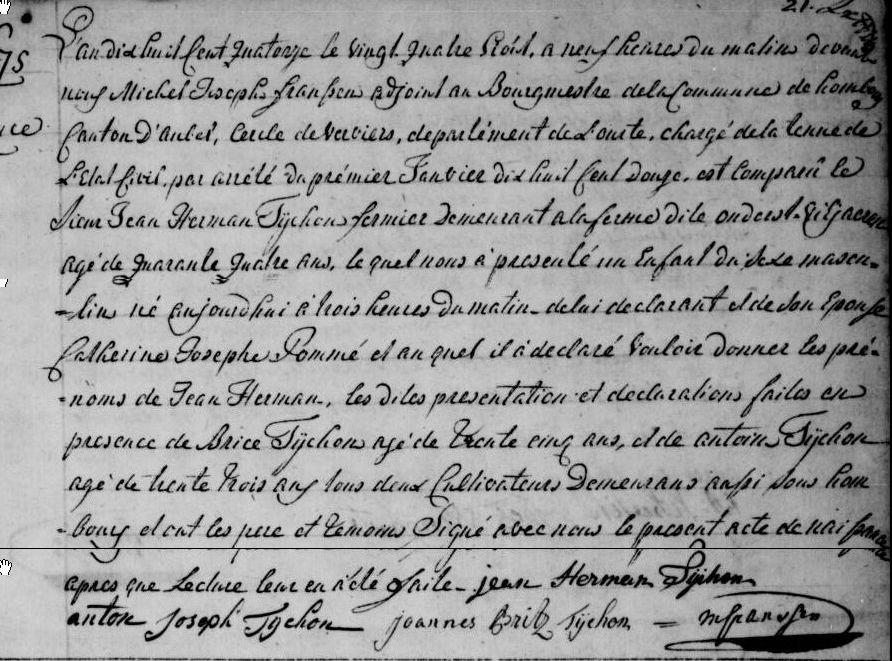 21.
L'an dix huit Cent Quatorze le vingt Quatre Août, a neuf heures du matin devant
75
nous Michel Joseph franssen adjoint au Bourgmestre de la Commune de hombourg
Canton D'aubel, Cercle de Verviers, departément de L'ourte, chargé de la tenue de
L'Etat Civil, par arrêté du prémier Janvier dix huit Cent Douze, est Comparû le
Sieur Jean Herman Tÿchon fermier Demeurant a la ferme dite
agé de Quarante Quatre ans, le quel nous à presenté un Enfant du Sexe mascu-
=lin né aujourdhui à trois heures Du matin de lui declarant et de Son Epouse
Catherine Josephe Pommé et au quel il à declaré Vouloir donner les pré-
-noms de Jean Herman, les dites presentation et declarations faites en
presence de Brice Tÿchon agé de trente cinq ans, et de antoine Tÿchon
agé de trente trois ans tous deux Cultivateurs Demeurans aussi sous hom
-bourg et ont les pere et temoins Signé avec nous le present acte de naissance
apres que Lecture leur en a été faite - jean Herman Tÿchon
anton Joseph Tychon joannes Britz Tÿchon = mfranssen